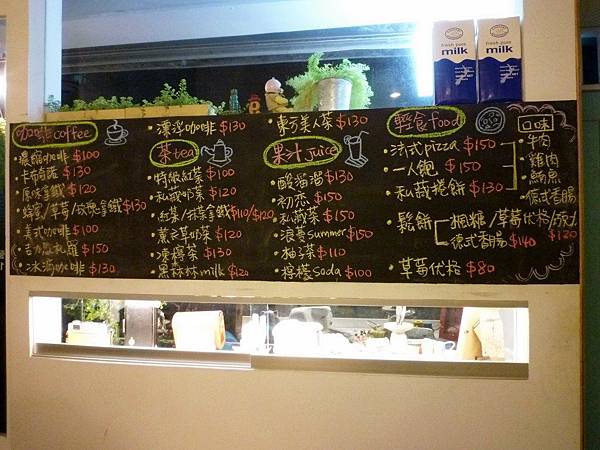 fresh pure
milk
fresh pure
milk
咖啡 coffee
濃縮咖啡 $100
卡布奇諾 $130
原味拿鐵 $120
蜂蜜/草莓/玫瑰拿鐵 $130
美式咖啡 $100
$150
冰滴咖啡 $130
漂浮咖啡 $130
茶 tea
特級紅茶 $100
私藏奶茶 $120
紅茶/抹茶拿鐵 $110/$120
薰衣草奶茶 $120
凍檸茶 $130
黑森林 milk $120
東方美人茶 $130
果汁 juice
酸溜溜 $130
初戀 $150
私藏茶 $150
浪費 summer $150
柚子茶 $110
檸檬 soda $100
輕食 food
法式 pizza $150
一人飽 $150
私藏捲餅 $130
口味
牛肉
雞肉
鮪魚
德式香腸
鬆餅
楓糖/草莓优格/
$120
德式香腸 $140
草莓优格 $80